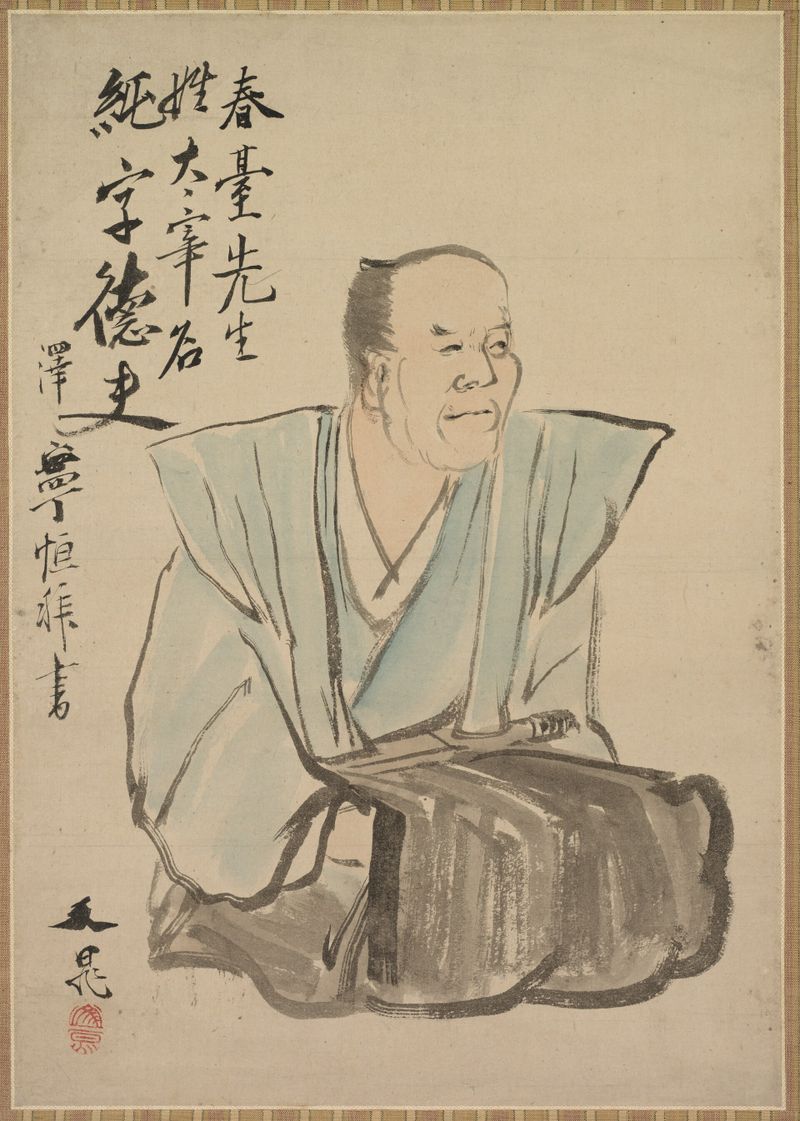 春臺先生
姓大宰名
純字德夫
澤寧恒雅書
文晁